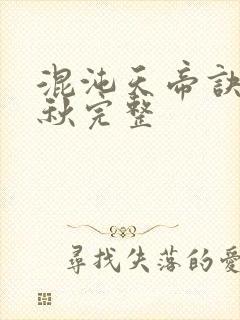 混沌天帝訣
秋完整
尋找失落的愛